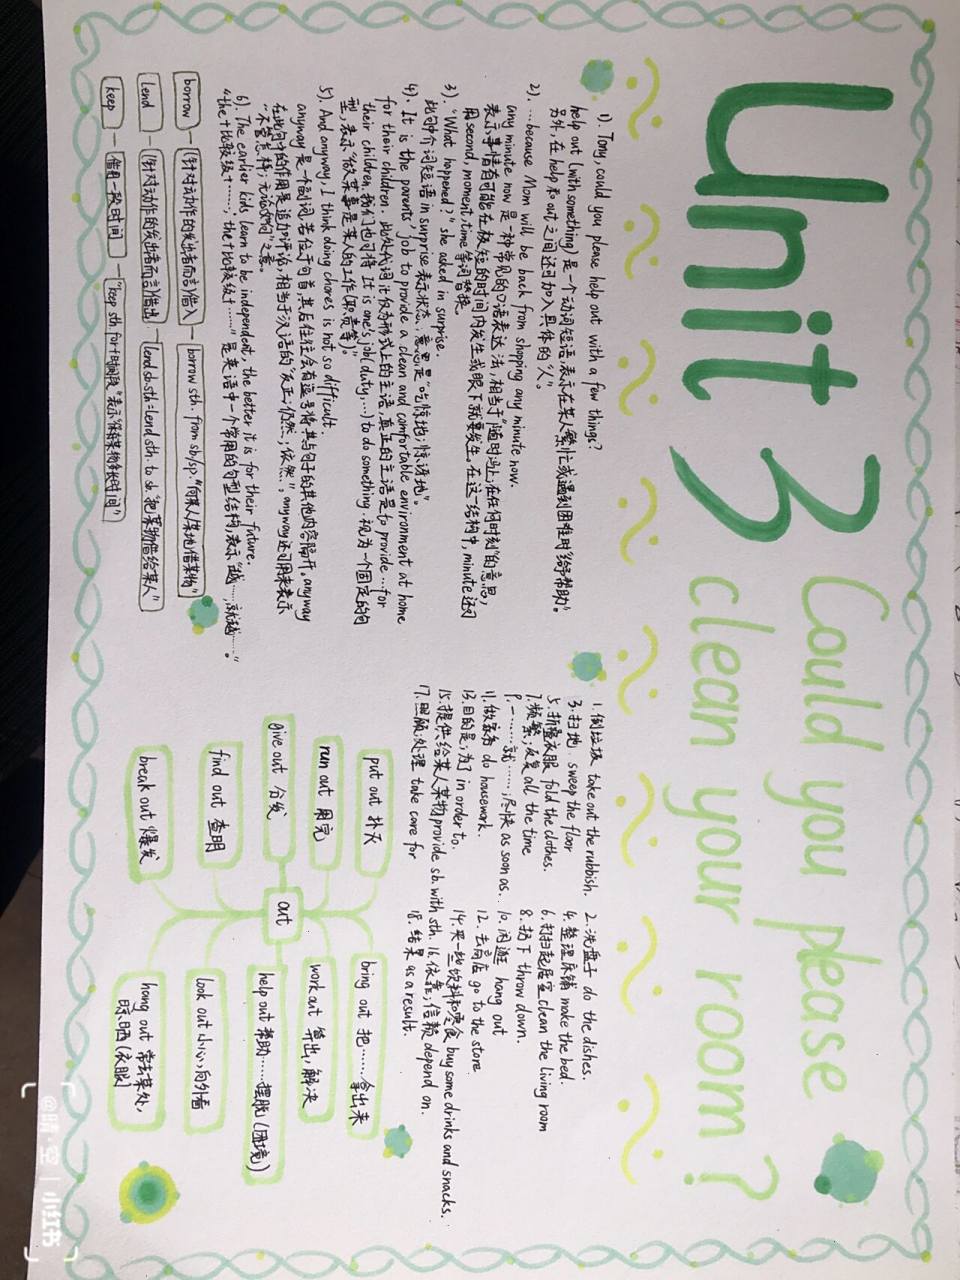 Unit 3 Could you please
clean your room?
1). Tony, could you please help out with a few things?
help out (with something) 是一个动词短语,表示在某人繁忙或遇到困难时"给予帮助"。
另外,在help和out之间还可加入具体的"人"。
2). ...because Mom will be back from shopping any minute now.
any minute now 是一种常见的口语表达法,相当于"随时;马上;在任何时刻"的意思,
表示事情有可能在极短的时间内发生或眼下就要发生。在这一结构中,minute还可
用second, moment, time等词替换。
3). "What happened?" she asked in surprise.
此句中介词短语in surprise表示状态,意思是"吃惊地;惊讶地"。
4). It is the parents' job to provide a clean and comfortable environment at home
for their children. 此处代词it仅为形式上的主语,真正的主语是to provide...for
their children. 我们也可将It is one's job(duty,...) to do something 视为一个固定的句
型,表示"做某事是某人的工作(职责等)"。
5). And anyway, I think doing chores is not so difficult.
anyway 是一个副词,若位于句首,其后往往会有逗号将其与句子的其他内容隔开。anyway
在此句中的作用是追加评论,相当于汉语的"反正;仍然;依然"。anyway还可用来表示
"不管怎样;无论如何"之意。
6). The earlier kids learn to be independent, the better it is for their future.
"the+比较级+……,the+比较级+……"是英语中一个常用的句型结构,表示"越……,就越……"。
borrow — (针对动作的发出者而言)借入 — borrow sth. from sb/sp. "向某人/某地借某物"
lend — (针对动作的发出者而言)借出 — lend sb sth=lend sth. to sb "把某物借给某人"
keep — 借用一段时间 — "keep sth. for+时间段"表示"保留某物多长时间"
1. 倒垃圾 take out the rubbish. 2. 洗盘子 do the dishes.
3. 扫地 sweep the floor 4. 整理床铺 make the bed.
5. 折叠衣服 fold the clothes. 6. 打扫起居室 clean the living room
7. 频繁;反复 all the time 8. 扔下 throw down.
9. 一……就……;尽快 as soon as. 10. 闲逛 hang out
11. 做家务 do housework. 12. 去商店 go to the store.
13. 目的是;为了 in order to. 14. 买一些饮料和零食 buy some drinks and snacks.
15. 提供给某人某物 provide sb. with sth. 16. 依靠;信赖 depend on.
17. 照顾;处理 take care for 18. 结果 as a result.
put out 扑灭
bring out 把……拿出来
run out 用完
work out 算出,解决
give out 分发
out
help out 帮助……摆脱(困境)
find out 查明
look out 小心,向外看
break out 爆发
hang out 常去某处,
晾晒(衣服)
@晴·空 | 小红书